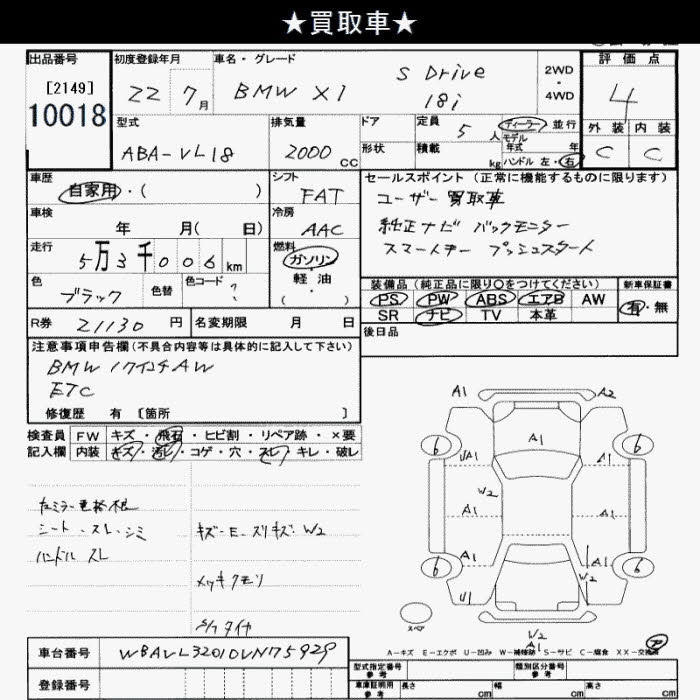 ★買取車★
出品番号 初度登録年月 車名・グレード 評価点
[2149]
10018
22 7月 BMW X1 S Drive 18i 2WD・4WD 4
型式 排気量 ドア 定員 5人 ディーラー 並行 外装 内装
モデル年式 年
ABA-VL18 2000cc 形状 積載 kg ハンドル 左・右 C C
車歴 シフト セールスポイント(正常に機能するものに限ります)
自家用・( ) FAT ユーザー買取車
車検 冷房 純正ナビ バックモニター
年 月( 日) AAC スマートキー プッシュスタート
走行 燃料
5万3千006km ガソリン・軽油・( )
色 色替 色コード 装備品(純正品に限り〇をつけてください) 新車保証書
ブラック ? PS PW ABS エアB AW 有・無
R券 21130円 名変期限 月 日 SR ナビ TV 本革
注意事項申告欄(不具合内容等は具体的に記入して下さい) 後日品
BMW 17インチAW
ETC
修復歴 有 [箇所 ]
検査員 FW キズ・飛石・ヒビ割・リペア跡・×要
記入欄 内装 キズ・汚レ・コゲ・穴・スレ・キレ・破レ
A1 A2
A1
6 6
UA1 A1
W2
A1 A1
A1 A1
6 W2 6
U1 A1
シート・スレ・シミ
ハンドル スレ
キズ・E・スリキズ・W2
メッキクモリ
S/1 タイヤ
スペア
W2
A1
ア
A-キズ E-エクボ U-凹み W-補修跡 S-サビ C-腐食 XX-交換済
車台番号 WBAVL32010VN75929
登録番号
型式指定番号 参考 類別区分番号 参考
車庫証明用 参考 長さ cm 幅 cm 高さ cm